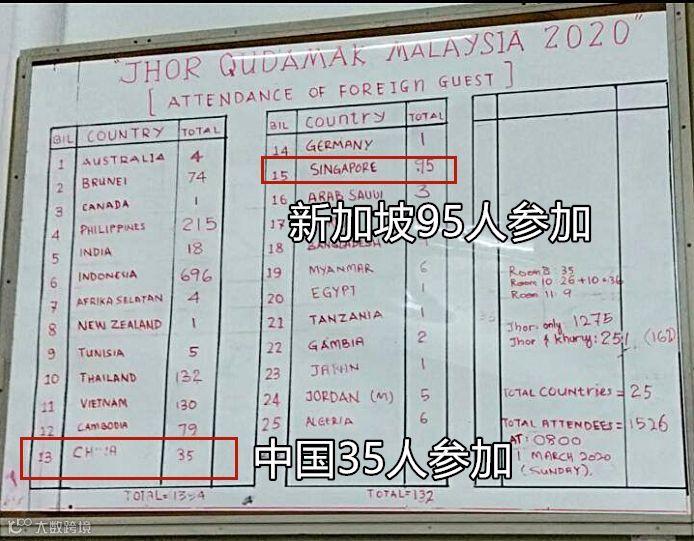 "JHOR QUDAMAK MALAYSIA 2020"
[ ATTENDANCE OF FOREIGN GUEST ]
BIL COUNTRY TOTAL
1 AUSTRALIA 4
2 BRUNEI 74
3 CANADA 1
4 PHILIPPINES 215
5 INDIA 18
6 INDONESIA 696
7 AFRIKA SELATAN 4
8 NEW ZEALAND 1
9 TUNISIA 5
10 THAILAND 132
11 VIETNAM 130
12 CAMBODIA 79
13 35
TOTAL=
BIL Country TOTAL
14 GERMANY 1
15 SINGAPORE 95
16 ARAB SAUDI 3
17
新加坡95人参加
18 BANGLADESH
19 MYANMAR 6
20 EGYPT 1
21 TANZANIA 1
22 GAMBIA 2
23 1
24 JORDAN (M) 5
25 ALGERIA 6
中国35人参加
TOTAL=132
Room 8: 35
Room 10: 26+10=36
Room 11: 9
Jhor only 1275
Jhor & khuruj: 251 (162)
TOTAL COUNTRIES = 25
TOTAL ATTENDEES = 1526
AT: 0800
1 MARCH 2020
(SUNDAY).
大数跨境